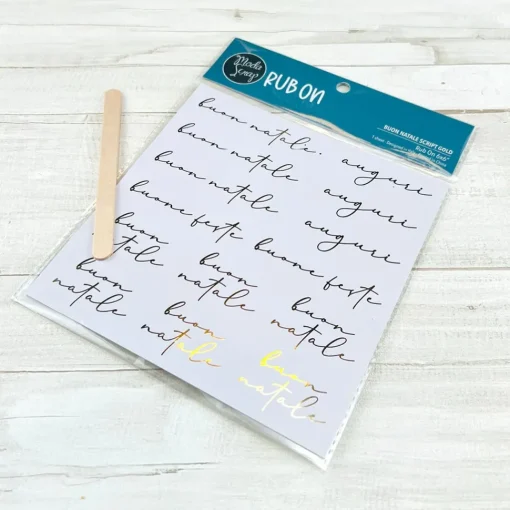 Moda
Scrap
RUB ON
BUON NATALE SCRIPT GOLD
Rub On 6x6"
buon natale.
auguri
buon natale
auguri
buon natale
auguri
buone feste
buone feste
buon
natale
buon
natale
buon
natale
buon
natale
buon
natale
buon
natale